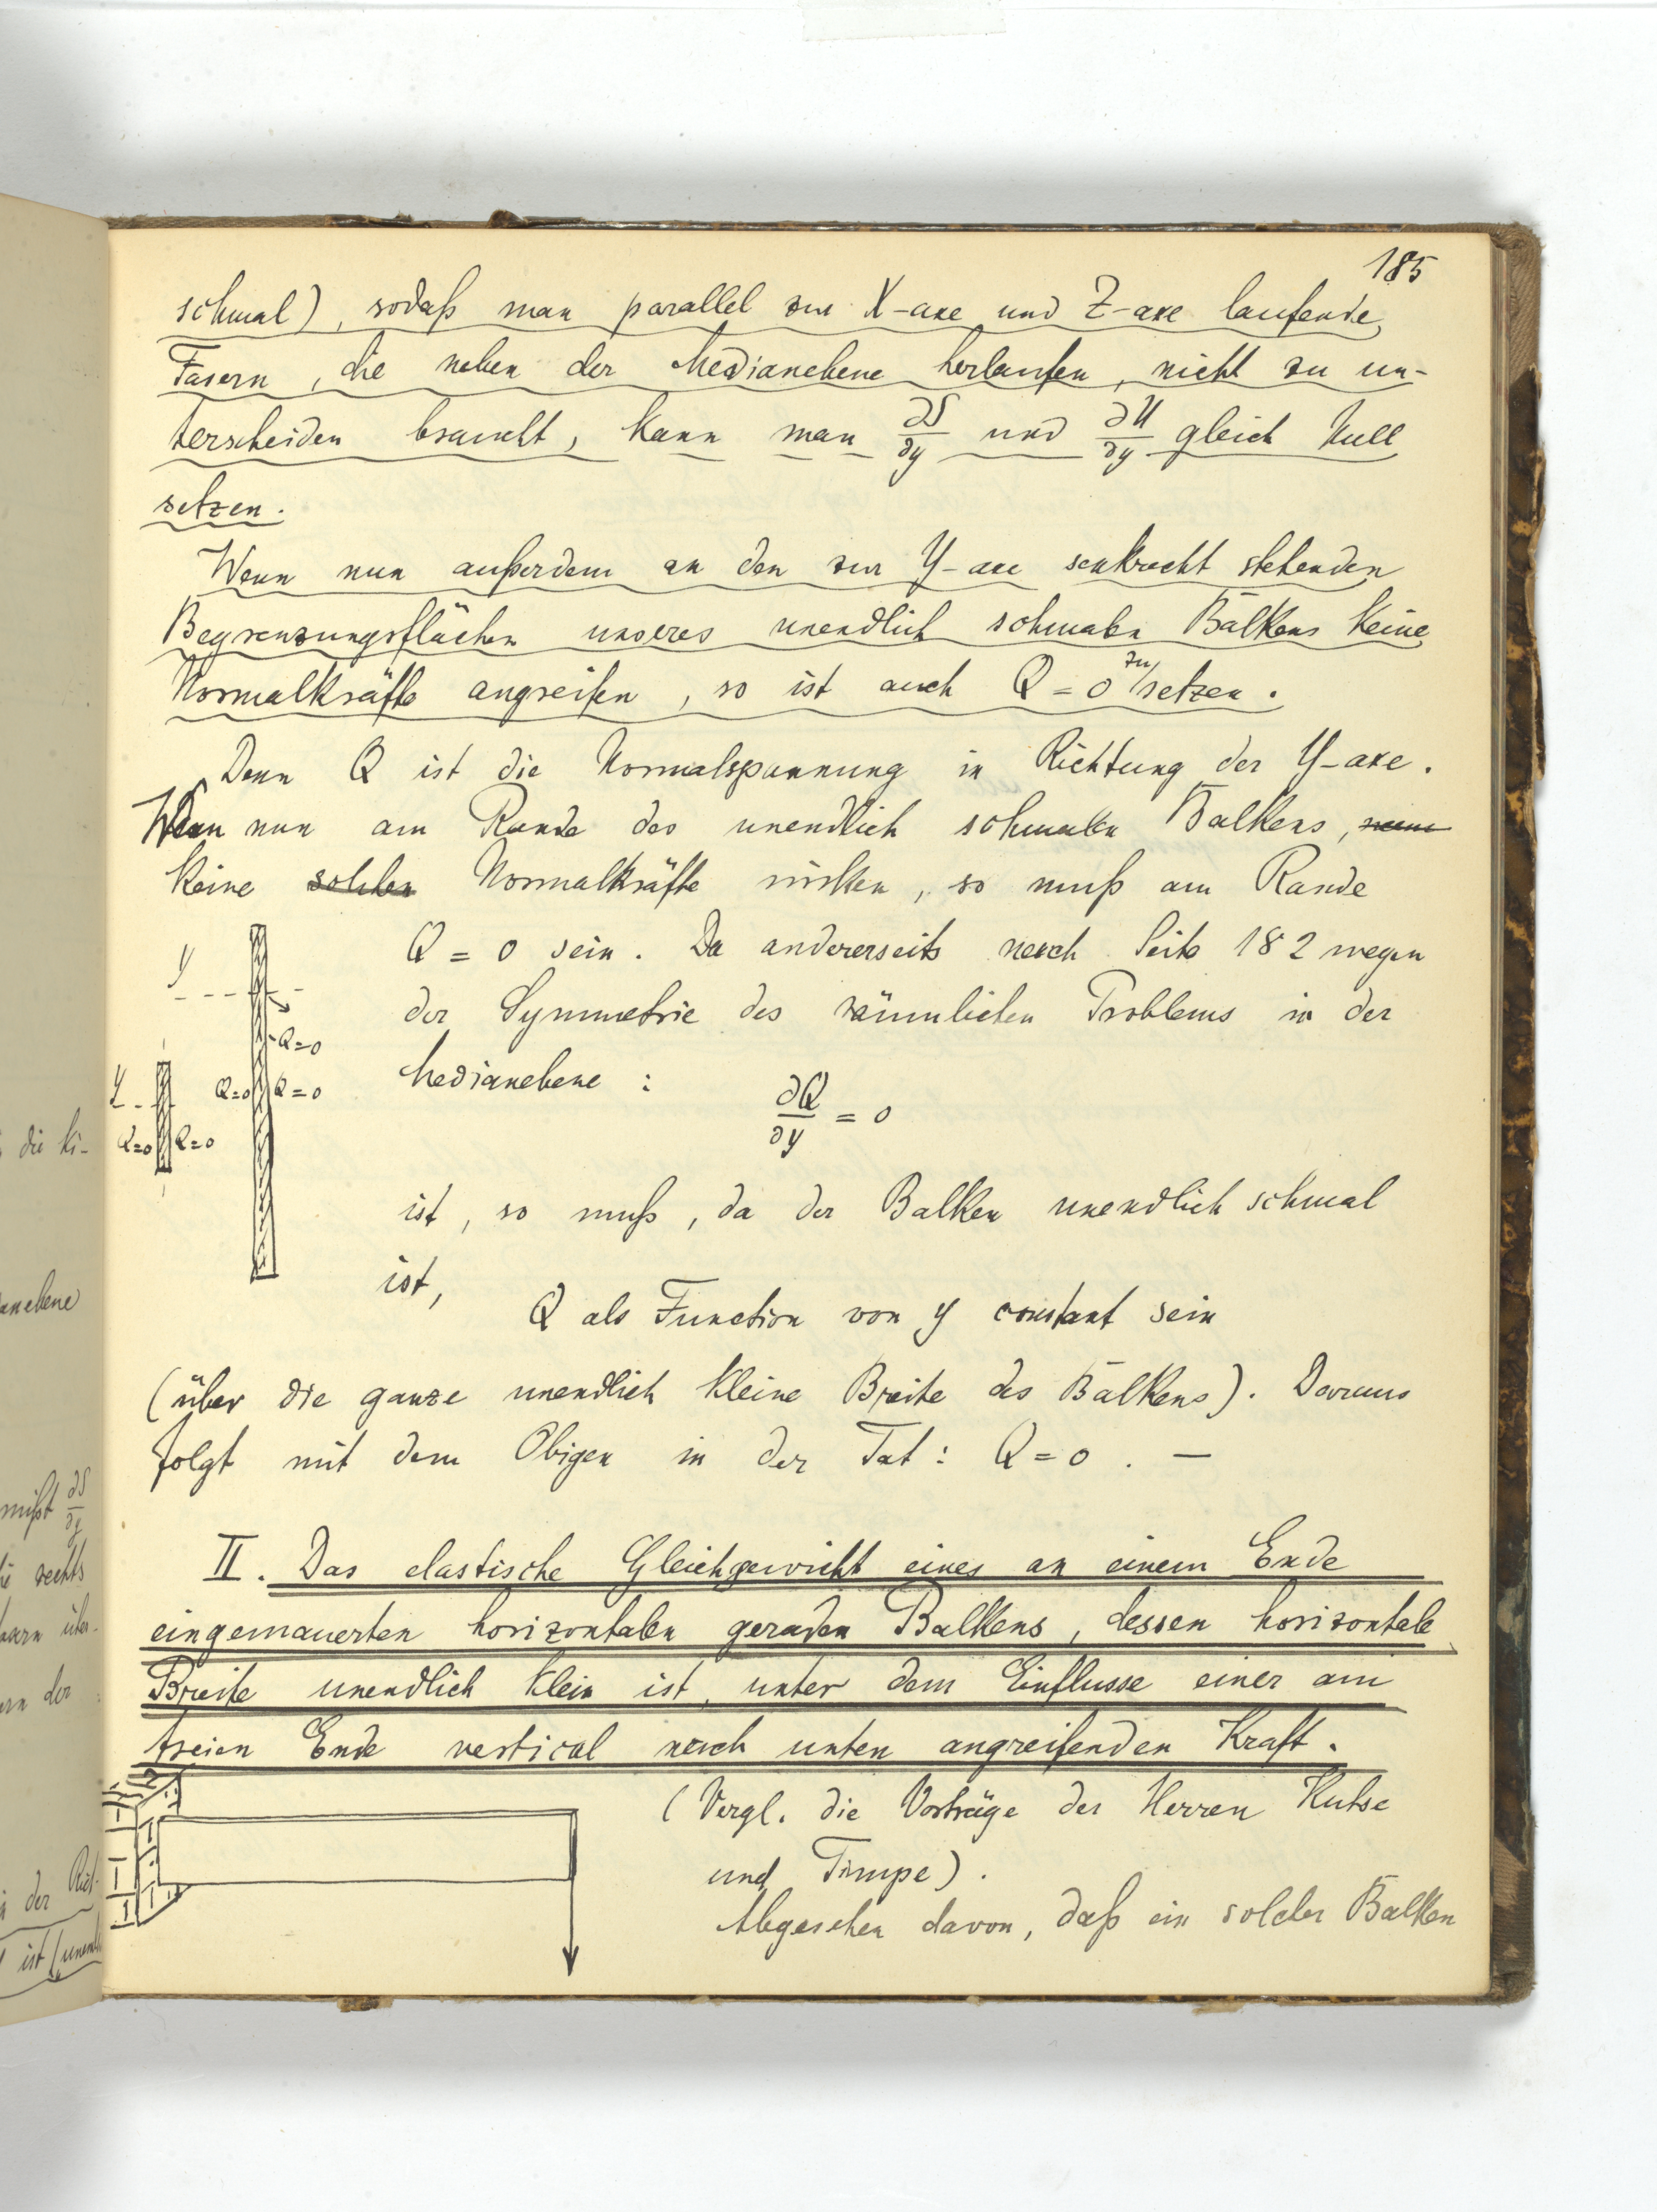 185
schmal), sodaß man parallel zur X-axe und Z-axe laufende
Fasern, die neben der Medianebene herlaufen, nicht zu un-
terscheiden braucht, kann man ∂S/∂y und ∂U/∂y gleich Null
setzen.
Wenn nun außerdem an den zur Y-axe senkrecht stehenden
Begrenzungsflächen unseres unendlich schmalen Balkens keine
Normalkräfte angreifen, so ist auch Q = 0 zu setzen.
Denn Q ist die Normalspannung in Richtung der Y-axe.
Wenn nun am Rande des unendlich schmalen Balkens,
keine solchen Normalkräfte wirken, so muß am Rande
Q = 0 sein. Da andererseits nach Seite 182 wegen
der Symmetrie des räumlichen Problems in der
Medianebene:
∂Q/∂y = 0
Y
Q=0
Q=0 Q=0
Y
Q=0 Q=0
ist, so muß, da der Balken unendlich schmal
ist,
Q als Function von y constant sein
(über die ganze unendlich kleine Breite des Balkens). Daraus
folgt mit dem Obigen in der Tat: Q = 0. —
II. Das elastische Gleichgewicht eines an einem Ende
eingemauerten horizontalen geraden Balkens, dessen horizontale
Breite unendlich klein ist, unter dem Einflusse einer am
freien Ende vertical nach unten angreifenden Kraft.
(Vergl. die Vorträge der Herren
und Timpe).
Abgesehen davon, daß ein solcher Balken
die
anebene
mißt ∂S/∂y
rechts
der
in der
ist